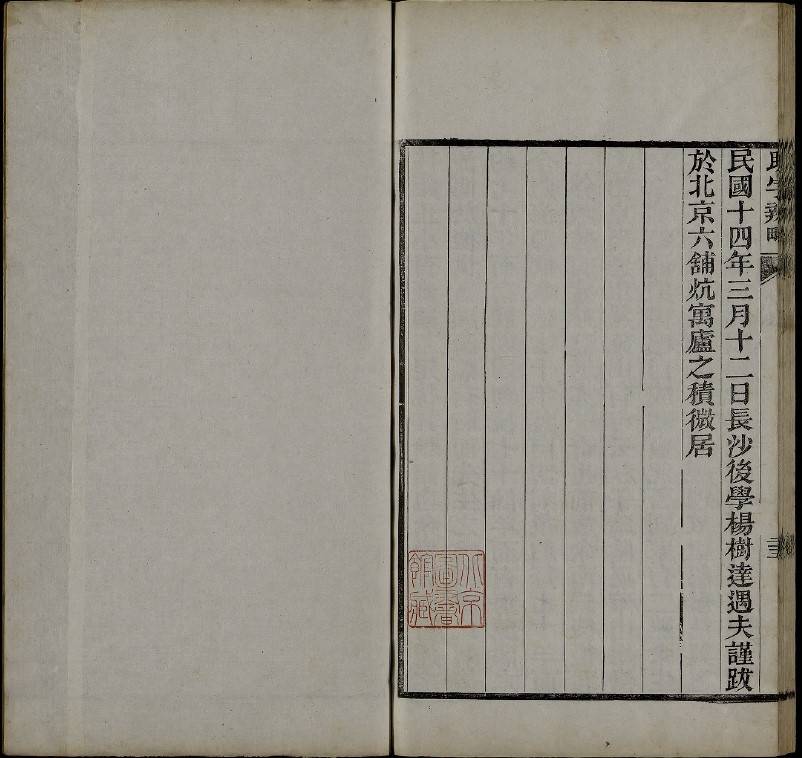 助字辨略
三
民國十四年三月十二日長沙後學楊樹達遇夫謹跋
於北京六舖炕寓廬之積微居
北京
圖書
館藏